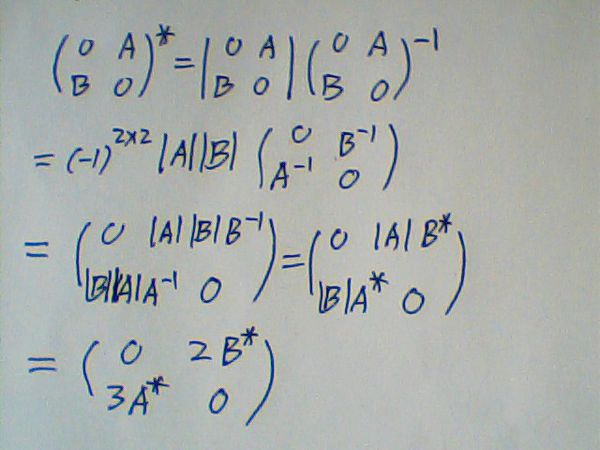 (0 A B 0)* = |0 A B 0| (0 A B 0)⁻¹
= (-1)²ˣ² |A||B| (0 B⁻¹ A⁻¹ 0)
= (0 |A||B|B⁻¹ |B||A|A⁻¹ 0) = (0 |A|B* |B|A* 0)
= (0 2B* 3A* 0)